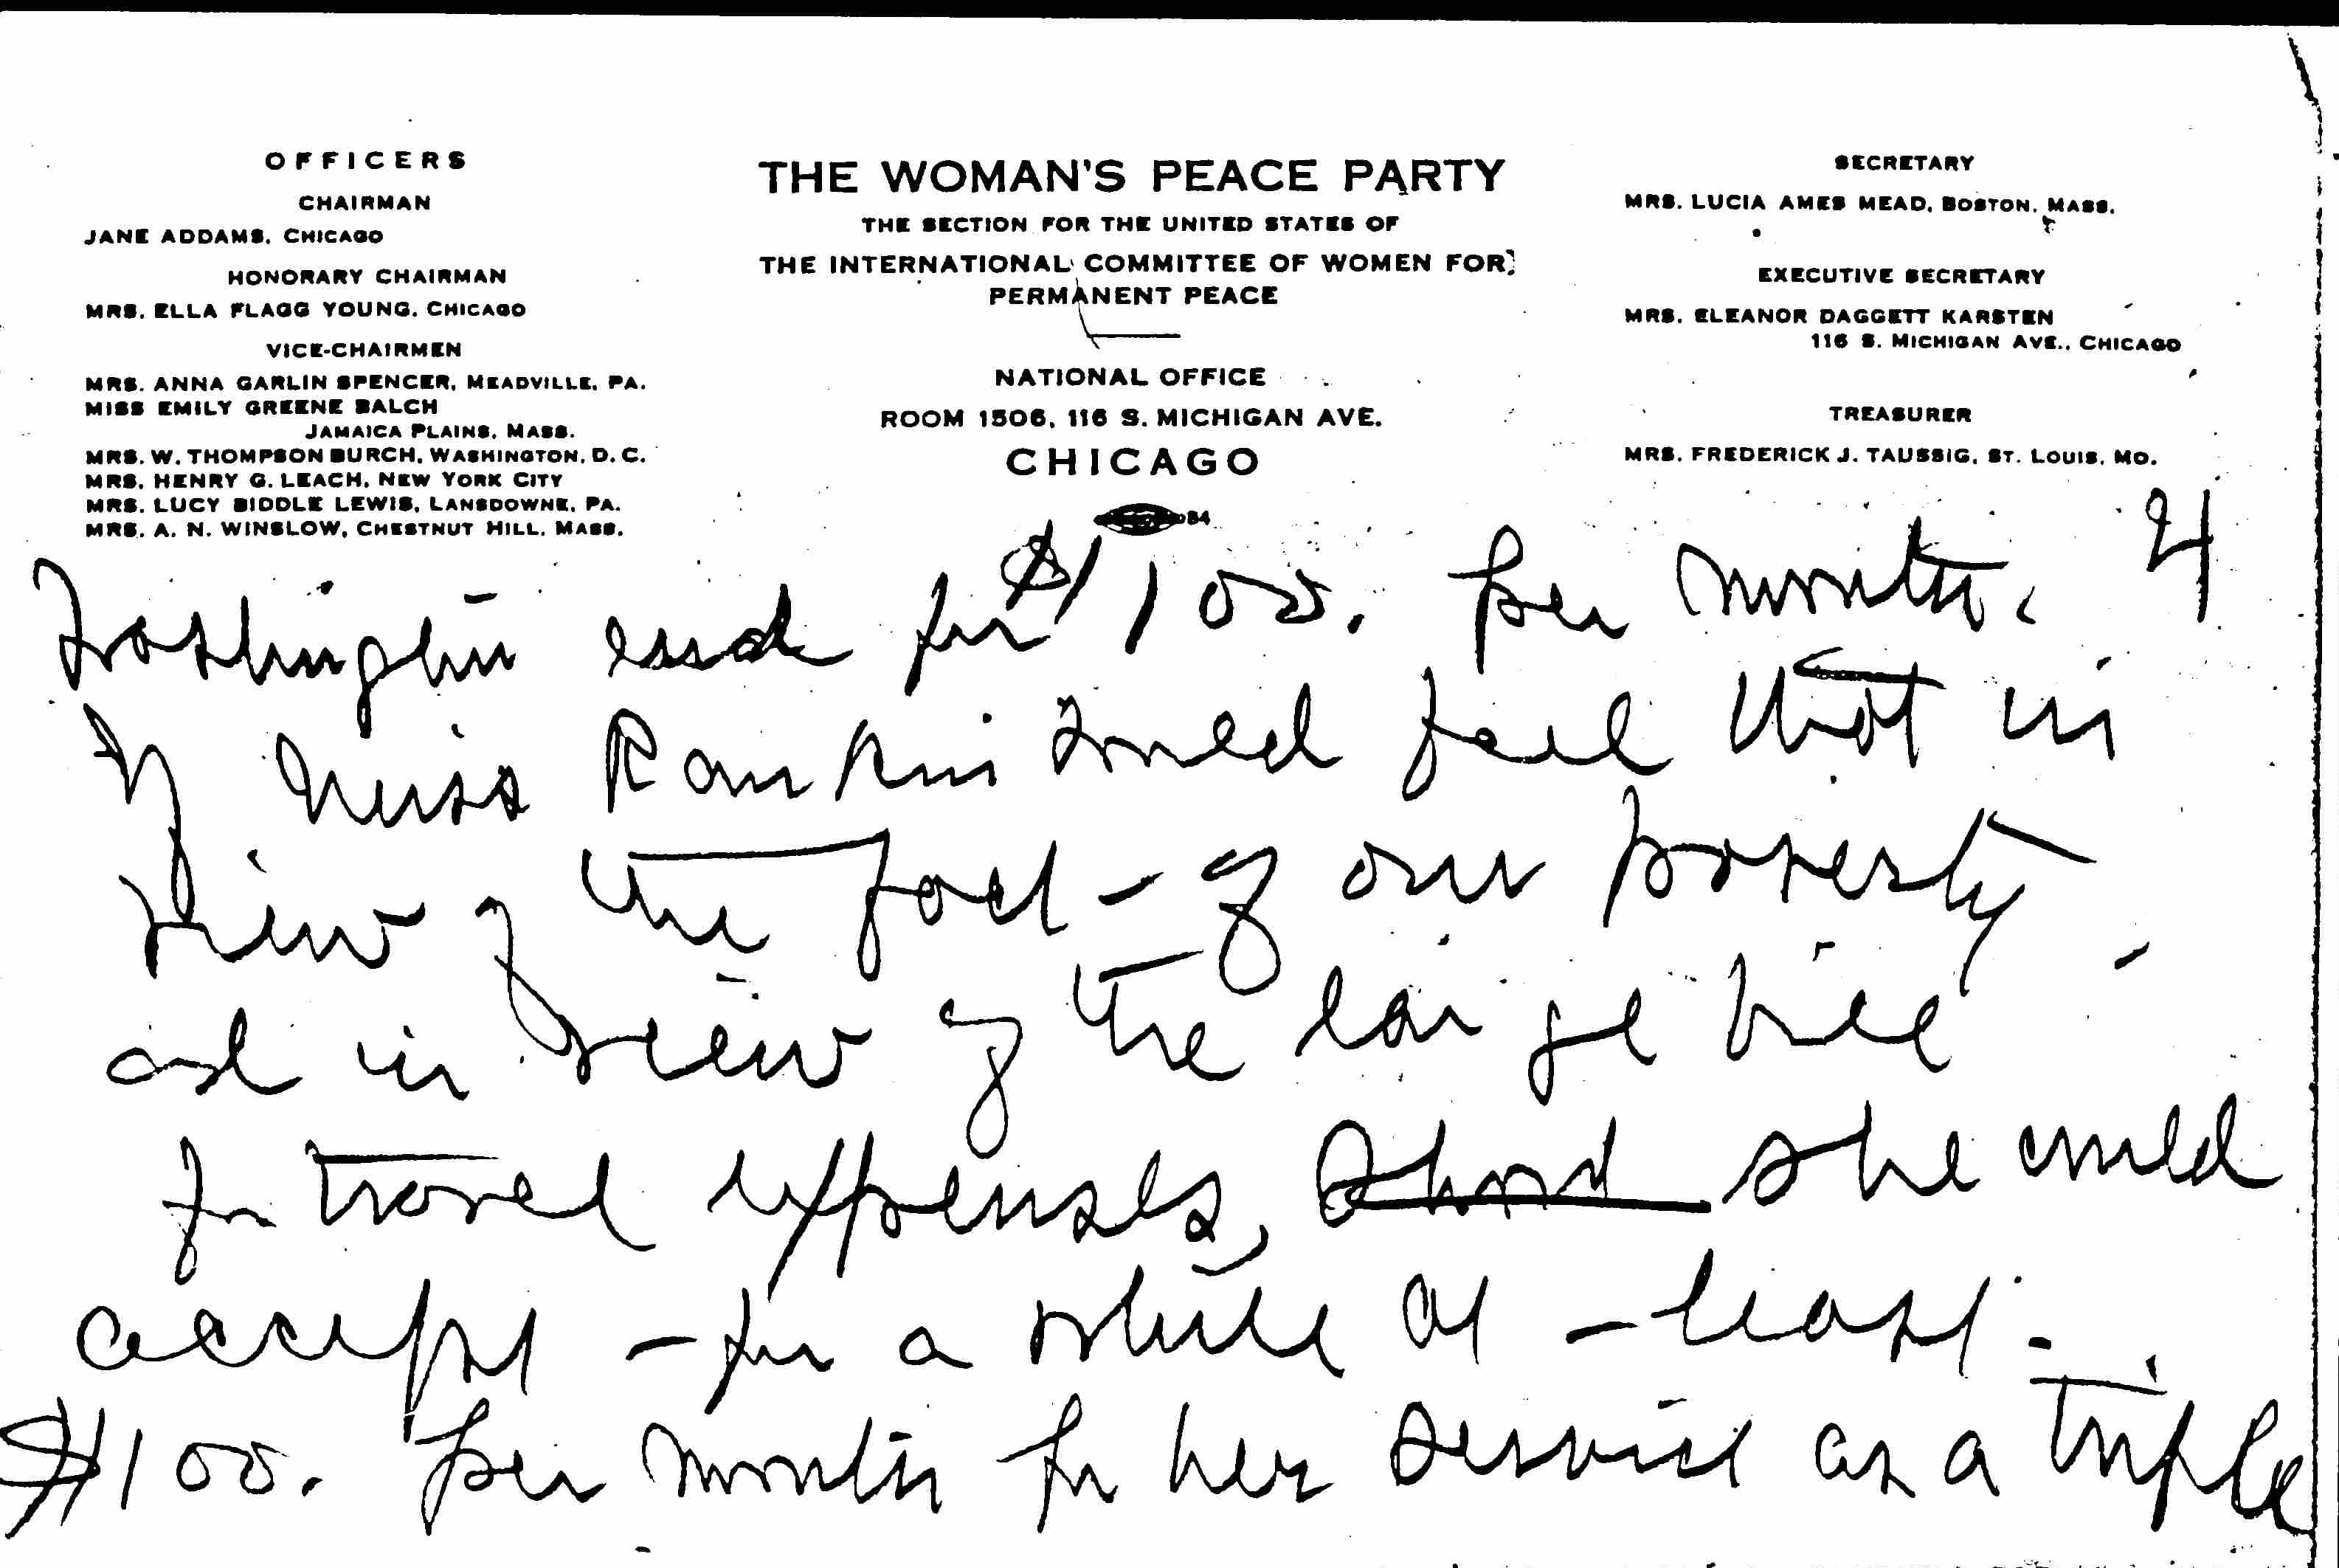 OFFICERS
CHAIRMAN
JANE ADDAMS, CHICAGO
HONORARY CHAIRMAN
MRS. ELLA FLAGG YOUNG, CHICAGO
VICE-CHAIRMEN
MRS. ANNA GARLIN SPENCER, MEADVILLE, PA.
MISS EMILY GREENE BALCH
JAMAICA PLAINS, MASS.
MRS. W. THOMPSON BURCH, WASHINGTON, D. C.
MRS. HENRY G. LEACH, NEW YORK CITY
MRS. LUCY BIDDLE LEWIS, LANSDOWNE, PA.
MRS. A. N. WINSLOW, CHESTNUT HILL, MASS.
THE WOMAN'S PEACE PARTY
THE SECTION FOR THE UNITED STATES OF
THE INTERNATIONAL COMMITTEE OF WOMEN FOR
PERMANENT PEACE
NATIONAL OFFICE
ROOM 1506, 116 S. MICHIGAN AVE.
CHICAGO
SECRETARY
MRS. LUCIA AMES MEAD, BOSTON, MASS.
EXECUTIVE SECRETARY
MRS. ELEANOR DAGGETT KARSTEN
116 S. MICHIGAN AVE., CHICAGO
TREASURER
MRS. FREDERICK J. TAUSSIG, ST. LOUIS, MO.
4
Washington end for $100. per month.
If Miss Rankin would feel that in
view of the fact of our poverty
and in view of the large bill
for travel expenses, she could
accept for a while at least
$100. per month for her service as a triple